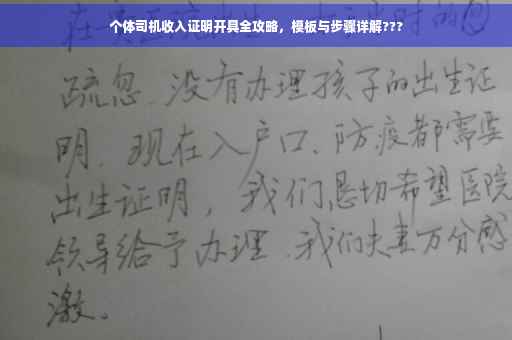 个体司机收入证明开具全攻略，模板与步骤详解???
疏忽、没有办理孩子的出生证
明、现在入户口、防疫都需要
出生证明，我们恳切希望医院
领导给予办理、我们夫妻万分感
激。